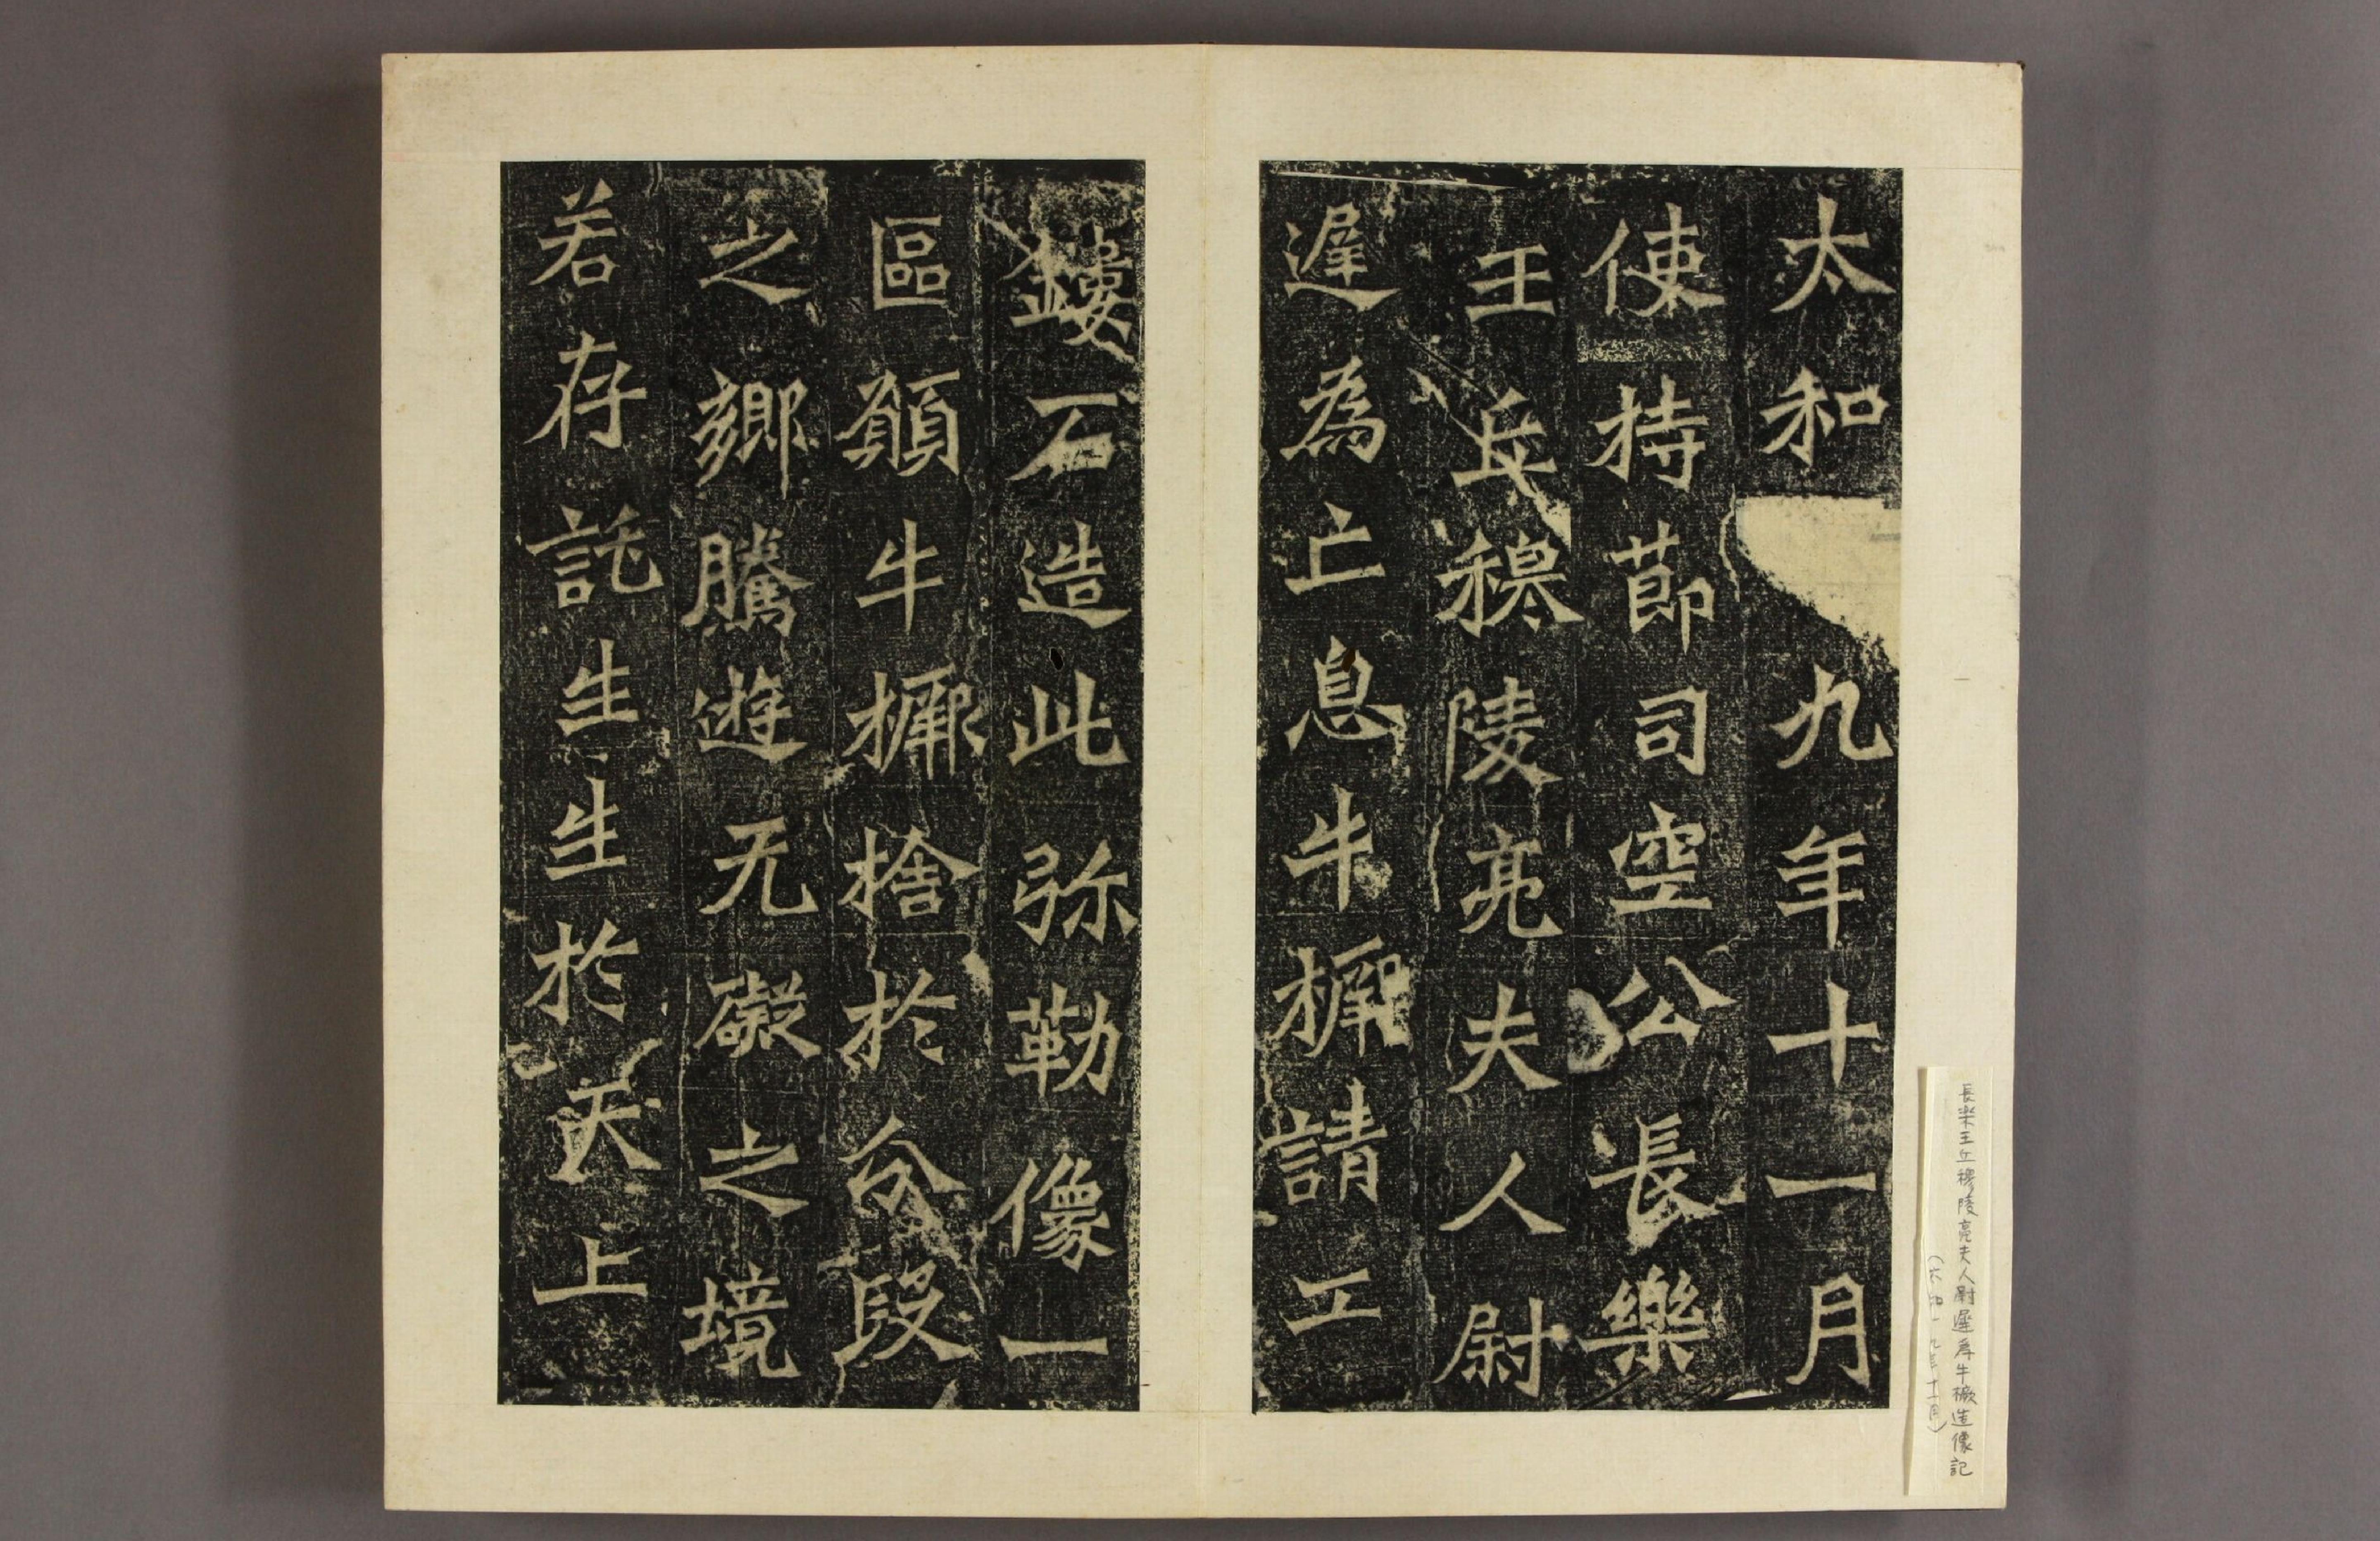 太和九年十一月
使持莭司空公長樂
王丘穆陵亮夫人尉
遲為亾息牛橛請工
鏤石造此弥勒像一
區願牛橛捨於分段
之鄉騰遊无礙之境
若存託生生於天上
長樂王丘穆陵亮夫人尉遲為牛橛造像記
(太和十九年十一月)